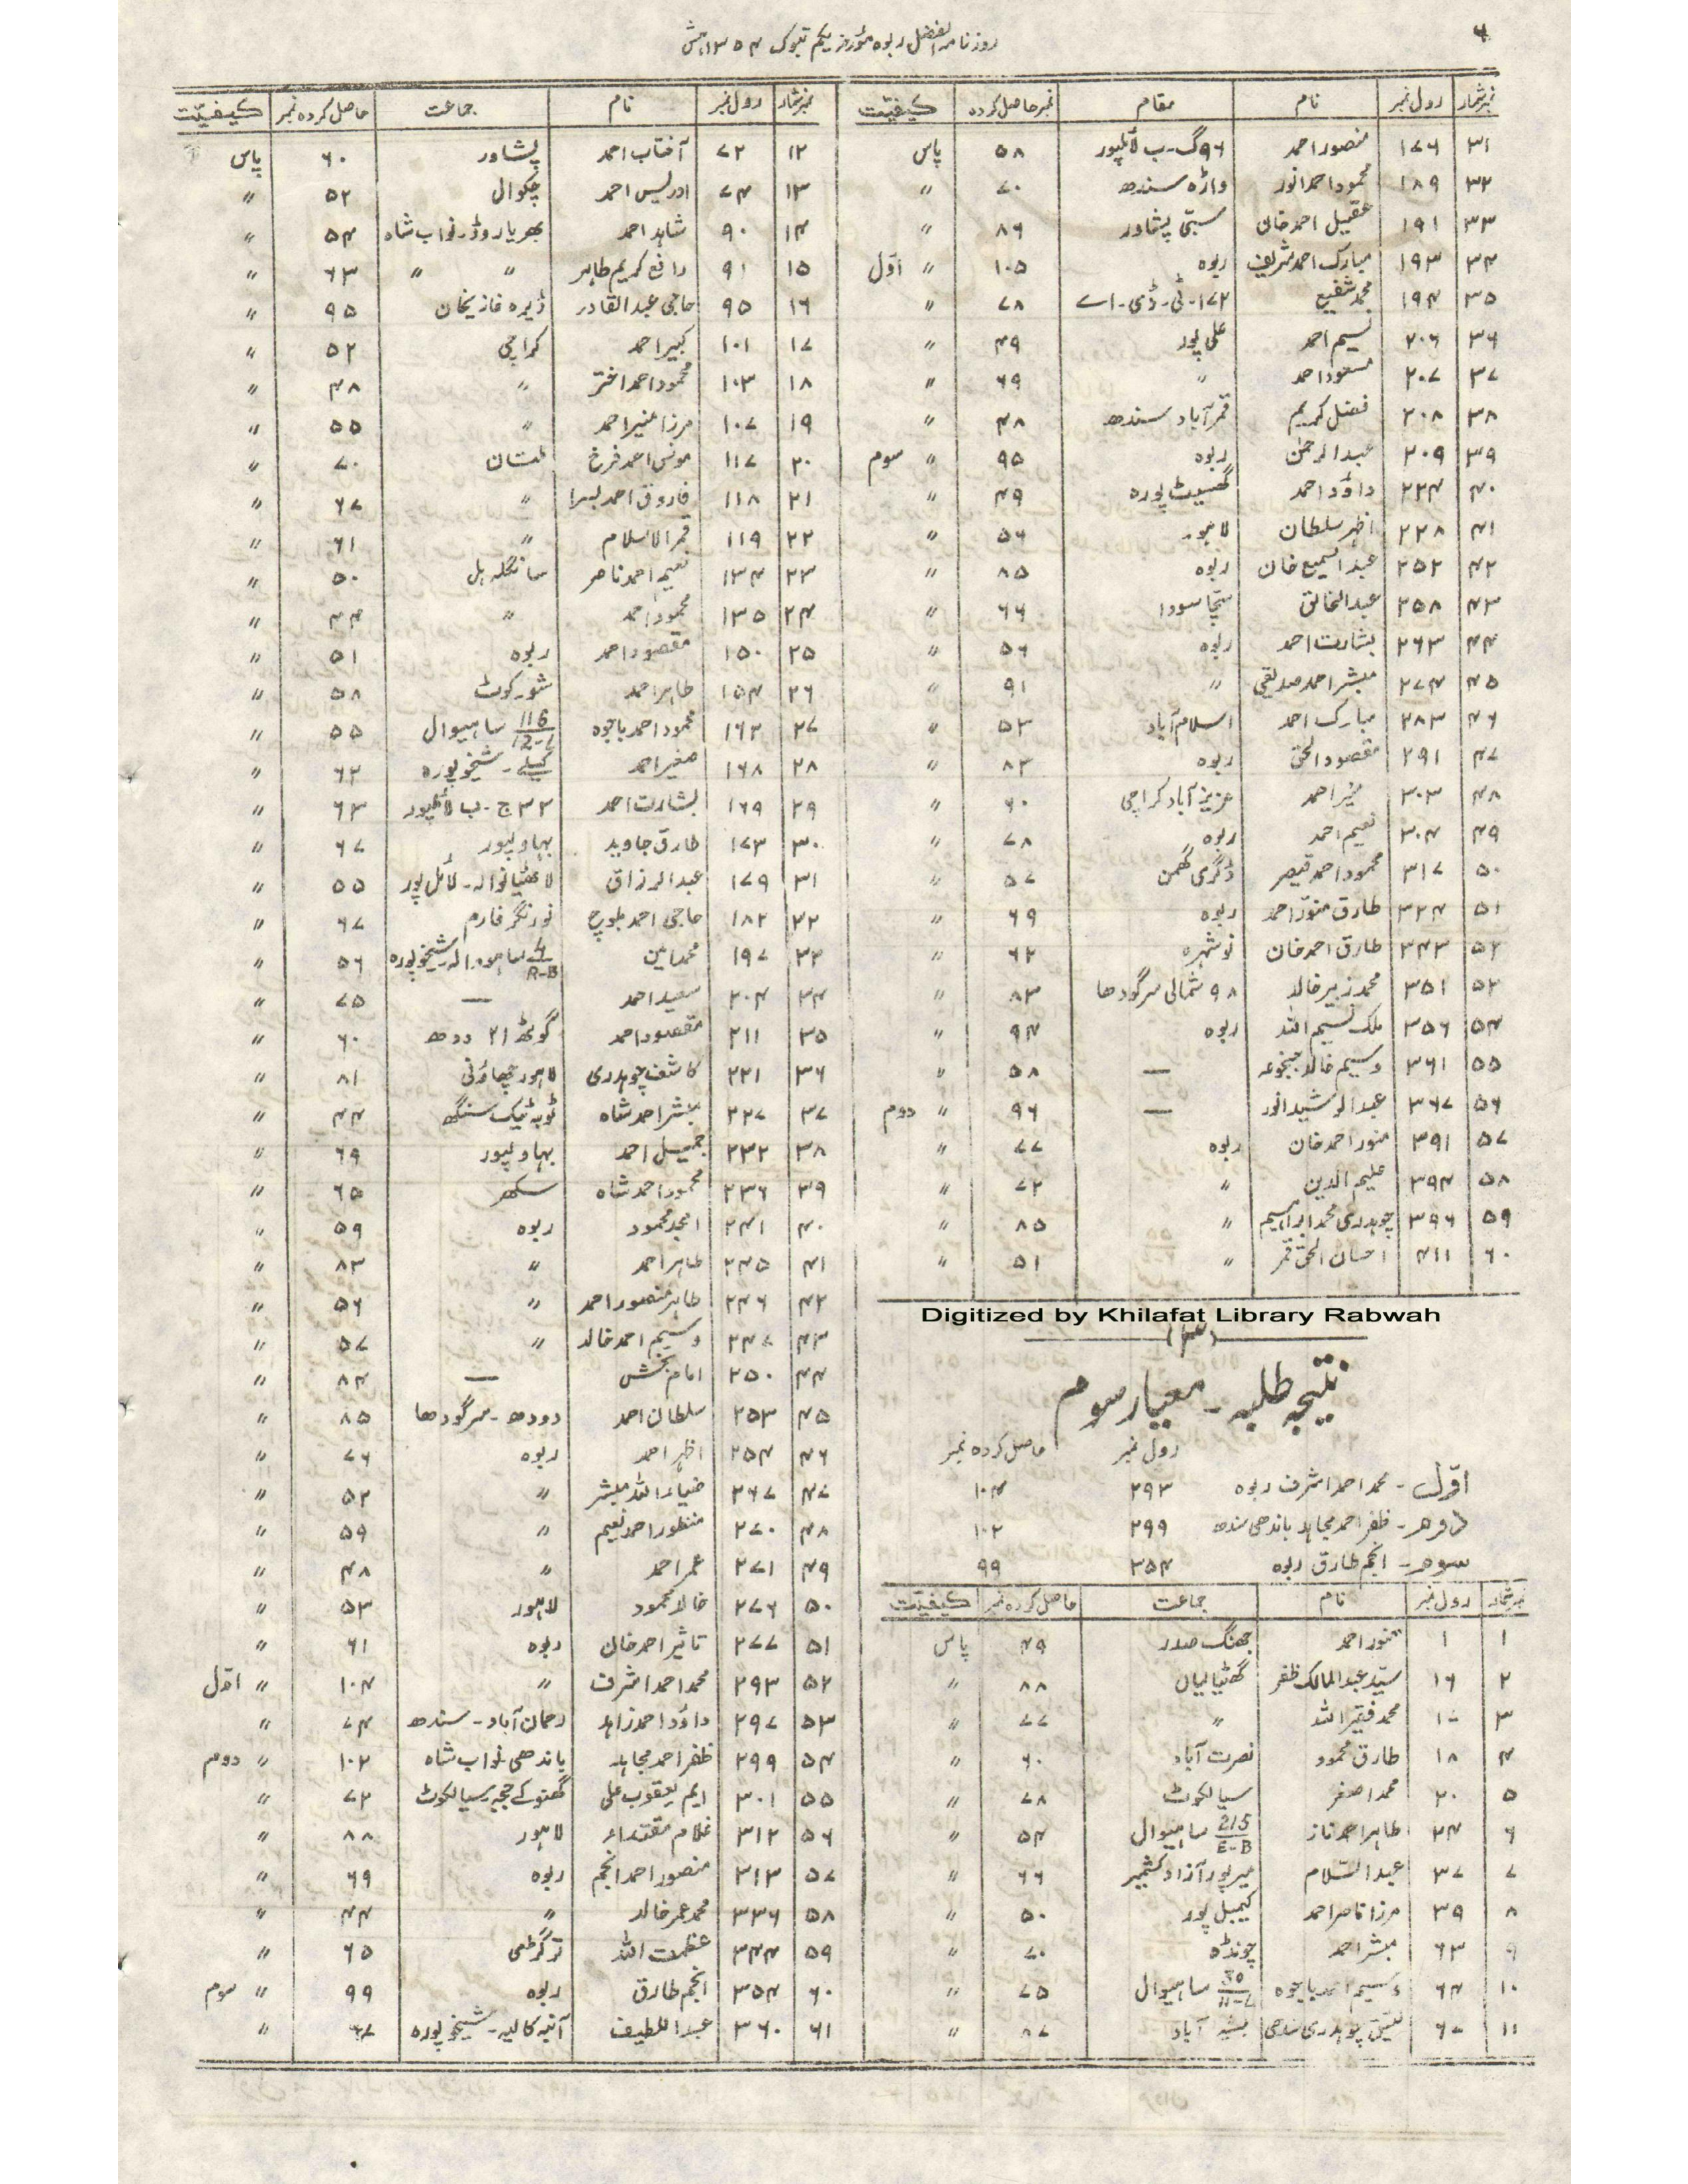 ۶
روزنامہ الفضل ربوہ مؤرخہ یکم تبوک ۱۳۵۴ہش
نمبر شمار | رول نمبر | نام | مقام | نمبر حاصل کردہ | کیفیّت
۳۱ | ۱۷۶ | منصور احمد | ۹۶ گ۔ب لائلپور | ۵۸ | پاس
۳۲ | ۱۸۹ | محمود احمد انور | واڑہ سندھ | ۷۰ | 〃
۳۳ | ۱۹۱ | عقیل احمد خان | سبّی پشاور | ۸۶ | 〃
۳۴ | ۱۹۳ | مبارک احمد شریف | ربوہ | ۱۰۵ | 〃 اوّل
۳۵ | ۱۹۴ | محمد شفیع | ۱۷۲-ٹی-ڈی-اے | ۷۸ | 〃
۳۶ | ۲۰۶ | نسیم احمد | علی پور | ۴۹ | 〃
۳۷ | ۲۰۷ | مسعود احمد | 〃 | ۶۹ | 〃
۳۸ | ۲۰۸ | فضل کریم | قمر آباد سندھ | ۴۸ | 〃
۳۹ | ۲۰۹ | عبد الرحمٰن | ربوہ | ۹۵ | 〃 سوم
۴۰ | ۲۲۴ | داؤد احمد | گھسیٹ پورہ | ۴۹ | 〃
۴۱ | ۲۲۸ | اظہر سلطان | لاہور | ۵۶ | 〃
۴۲ | ۲۵۲ | عبد السمیع خان | ربوہ | ۸۵ | 〃
۴۳ | ۲۵۸ | عبد الخالق | سچّا سودا | ۶۶ | 〃
۴۴ | ۲۶۳ | بشارت احمد | ربوہ | ۵۶ | 〃
۴۵ | ۲۷۴ | مبشر احمد صدیقی | 〃 | ۹۱ | 〃
۴۶ | ۲۸۳ | مبارک احمد | اسلام آباد | ۵۳ | 〃
۴۷ | ۲۹۱ | مقصود الحق | ربوہ | ۸۲ | 〃
۴۸ | ۳۰۳ | احمد | عزیز آباد کراچی | ۶۰ | 〃
۴۹ | ۳۰۴ | نعیم احمد | ربوہ | ۷۸ | 〃
۵۰ | ۳۱۷ | محمود احمد قیصر | ڈگری گھمن | ۵۷ | 〃
۵۱ | ۳۲۴ | طارق منوّر احمد | ربوہ | ۶۹ | 〃
۵۲ | ۳۴۳ | طارق احمد خان | نوشہرہ | ۶۲ | 〃
۵۳ | ۳۵۱ | محمد زبیر خالد | ۹۸ شمالی سرگودھا | ۸۳ | 〃
۵۴ | ۳۵۶ | ملک نسیم اللہ | ربوہ | ۹۴ | 〃
۵۵ | ۳۶۱ | وسیم خالد جنجوعہ | — | ۵۸ | 〃
۵۶ | ۳۶۷ | عبد الرشید انور | — | ۹۶ | 〃 دوم
۵۷ | ۳۹۱ | منور احمد خان | ربوہ | ۷۷ | 〃
۵۸ | ۳۹۴ | علیم الدین | 〃 | ۷۲ | 〃
۵۹ | ۳۹۶ | چوہدری محمد ابراہیم | 〃 | ۸۵ | 〃
۶۰ | ۴۱۱ | احسان الحق قمر | 〃 | ۵۱ | 〃
Digitized by Khilafat Library Rabwah
(۳)
نتیجہ طلبہ ۔ معیار سوم
رول نمبر | حاصل کردہ نمبر
اوّل ۔ محمد احمد اشرف ربوہ | ۲۹۳ | ۱۰۴
دوم ۔ ظفر احمد مجاہد باندھی سندھ | ۲۹۹ | ۱۰۲
سوم ۔ انجم طارق ربوہ | ۳۵۴ | ۹۹
نمبر شمار | رول نمبر | نام | جماعت | حاصل کردہ نمبر | کیفیّت
۱ | ۱ | منور احمد | جھنگ صدر | ۴۹ | پاس
۲ | ۱۶ | سیّد عبد المالک ظفر | گھٹیالیاں | ۸۸ | 〃
۳ | ۱۷ | محمد فقیر اللہ | 〃 | ۷۷ | 〃
۴ | ۱۸ | طارق محمود | نصرت آباد | ۶۰ | 〃
۵ | ۲۰ | محمد اصغر | سیالکوٹ | ۷۸ | 〃
۶ | ۲۴ | طاہر احمد ناز | 215/E-B ساہیوال | ۵۴ | 〃
۷ | ۳۷ | عبد السّلام | میرپور آزاد کشمیر | ۶۶ | 〃
۸ | ۳۹ | مرزا ناصر احمد | کیمبل پور | ۵۰ | 〃
۹ | ۶۳ | مبشر احمد | چونڈہ | ۷۰ | 〃
۱۰ | ۶۴ | وسیم احمد باجوہ | 30/11-L ساہیوال | ۷۵ | 〃
۱۱ | ۶۷ | چوہدری سندھی | بشیر آباد | ۸۷ | 〃
نمبر شمار | رول نمبر | نام | جماعت | حاصل کردہ نمبر | کیفیّت
۱۲ | ۷۲ | آفتاب احمد | پشاور | ۶۰ | پاس
۱۳ | ۷۴ | ادریس احمد | چکوال | ۵۲ | 〃
۱۴ | ۹۰ | شاہد احمد | بھریا روڈ نواب شاہ | ۵۴ | 〃
۱۵ | ۹۱ | رافع کریم طاہر | 〃 〃 | ۶۳ | 〃
۱۶ | ۹۵ | حاجی عبد القادر | ڈیرہ غازیخان | ۹۵ | 〃
۱۷ | ۱۰۱ | کبیر احمد | کراچی | ۵۲ | 〃
۱۸ | ۱۰۳ | محمود احمد اختر | 〃 | ۴۸ | 〃
۱۹ | ۱۰۷ | مرزا منیر احمد | 〃 | ۵۵ | 〃
۲۰ | ۱۱۷ | مونس احمد فرخ | ملتان | ۷۰ | 〃
۲۱ | ۱۱۸ | فاروق احمد لبرا | 〃 | ۶۷ | 〃
۲۲ | ۱۱۹ | قمر الاسلام | 〃 | ۶۱ | 〃
۲۳ | ۱۳۴ | نعیم احمد ناصر | سانگلہ ہل | ۵۰ | 〃
۲۴ | ۱۳۵ | محمود احمد | 〃 | ۴۴ | 〃
۲۵ | ۱۵۰ | مقصود احمد | ربوہ | ۵۱ | 〃
۲۶ | ۱۵۴ | طاہر احمد | شورکوٹ | ۵۸ | 〃
۲۷ | ۱۶۳ | محمود احمد باجوہ | 116/12-L ساہیوال | ۵۵ | 〃
۲۸ | ۱۶۸ | صغیر احمد | شیخوپورہ | ۶۲ | 〃
۲۹ | ۱۶۹ | بشارت احمد | ۳۳ ج۔ب لائلپور | ۶۳ | 〃
۳۰ | ۱۷۳ | طارق جاوید | بہاولپور | ۶۷ | 〃
۳۱ | ۱۷۹ | عبد الرزاق | لاٹھیانوالہ۔لائل پور | ۵۵ | 〃
۳۲ | ۱۸۲ | حاجی احمد بلوچ | نورنگر فارم | ۶۷ | 〃
۳۳ | ۱۹۷ | محمد امین | R-B شیخوپورہ | ۵۶ | 〃
۳۴ | ۲۰۴ | سعید احمد | — | ۷۵ | 〃
۳۵ | ۲۱۱ | مقصود احمد | گوٹھ ۲۱ دودھ | ۶۰ | 〃
۳۶ | ۲۲۱ | کاشف چوہدری | لاہور چھاؤنی | ۸۱ | 〃
۳۷ | ۲۲۷ | مبشر احمد شاہ | ٹوبہ ٹیک سنگھ | ۴۴ | 〃
۳۸ | ۲۳۲ | جمیل احمد | بہاولپور | ۶۹ | 〃
۳۹ | ۲۳۶ | محمود احمد شاہ | سکھر | ۶۵ | 〃
۴۰ | ۲۴۱ | امجد محمود | ربوہ | ۵۹ | 〃
۴۱ | ۲۴۵ | طاہر احمد | 〃 | ۸۳ | 〃
۴۲ | ۲۴۶ | طاہر منصور احمد | 〃 | ۵۶ | 〃
۴۳ | ۲۴۷ | وسیم احمد خالد | 〃 | ۵۷ | 〃
۴۴ | ۲۵۰ | امام بخش | — | ۸۴ | 〃
۴۵ | ۲۵۳ | سلطان احمد | دودھ۔سرگودھا | ۸۵ | 〃
۴۶ | ۲۵۴ | اظہر احمد | ربوہ | ۷۶ | 〃
۴۷ | ۲۶۷ | ضیاء اللہ مبشر | 〃 | ۵۲ | 〃
۴۸ | ۲۷۰ | منظور احمد نعیم | 〃 | ۵۹ | 〃
۴۹ | ۲۷۱ | عمر احمد | 〃 | ۴۸ | 〃
۵۰ | ۲۷۶ | خالد محمود | لاہور | ۵۳ | 〃
۵۱ | ۲۷۷ | تاثیر احمد خان | ربوہ | ۶۱ | 〃
۵۲ | ۲۹۳ | محمد احمد اشرف | 〃 | ۱۰۴ | 〃 اوّل
۵۳ | ۲۹۷ | داؤد احمد زاہد | رحمان آباد۔سندھ | ۷۴ | 〃
۵۴ | ۲۹۹ | ظفر احمد مجاہد | باندھی نواب شاہ | ۱۰۲ | 〃 دوم
۵۵ | ۳۰۱ | ایم یعقوب علی | گھنوکے ججہ سیالکوٹ | ۷۲ | 〃
۵۶ | ۳۱۲ | غلام مقتداء | لاہور | ۸۸ | 〃
۵۷ | ۳۱۳ | منصور احمد انجم | ربوہ | ۶۹ | 〃
۵۸ | ۳۳۶ | محمد عمر خالد | 〃 | ۴۴ | 〃
۵۹ | ۳۴۴ | عظمت اللہ | ترگڑی | ۶۵ | 〃
۶۰ | ۳۵۴ | انجم طارق | ربوہ | ۹۹ | 〃 سوم
۶۱ | ۳۶۰ | عبد اللطیف | آنبہ کالیہ۔شیخوپورہ | ۶۷ | 〃